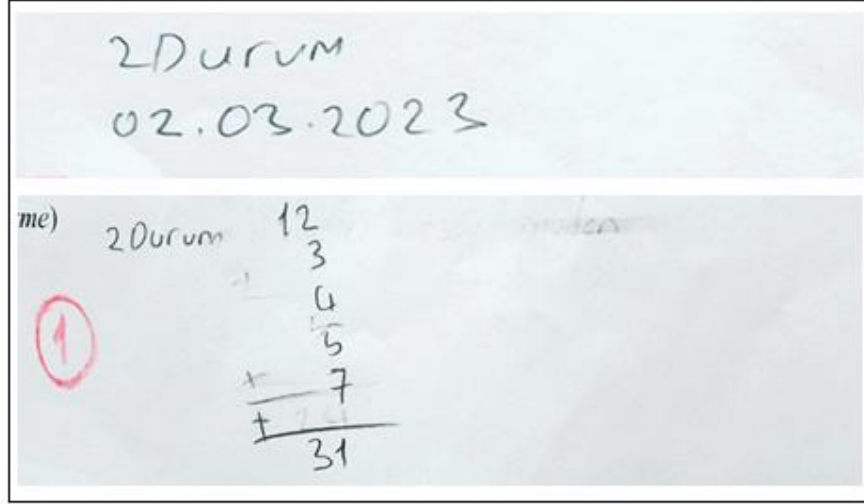 2Durum
02.03.2023
me)
2Durum
12
3
4
5
+ 7
+
31
1